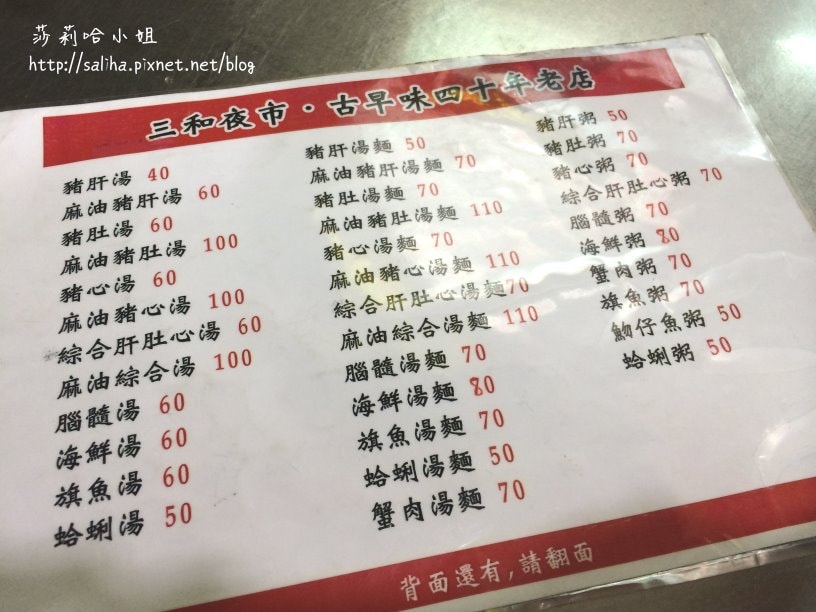 莎莉哈小姐
http://saliha.pixnet.net/blog
三和夜市·古早味四十年老店
豬肝湯 40
麻油豬肝湯 60
豬肚湯 60
麻油豬肚湯 100
豬心湯 60
麻油豬心湯 100
綜合肝肚心湯 60
麻油綜合湯 100
腦髓湯 60
海鮮湯 60
旗魚湯 60
蛤蜊湯 50
豬肝湯麵 50
麻油豬肝湯麵 70
豬肚湯麵 70
麻油豬肚湯麵 110
豬心湯麵 70
麻油豬心湯麵 110
綜合肝肚心湯麵70
麻油綜合湯麵 110
腦髓湯麵 70
海鮮湯麵 80
旗魚湯麵 70
蛤蜊湯麵 50
蟹肉湯麵 70
豬肝粥 50
豬肚粥 70
豬心粥 70
綜合肝肚心粥 70
腦髓粥 70
海鮮粥 80
蟹肉粥 70
旗魚粥 70
魩仔魚粥 50
蛤蜊粥 50
背面還有,請翻面